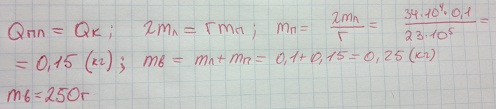 Qпл = Qк; 2mл = rmп; mп = 2mл/r = 34·10⁴·0,1/23·10⁵ =
= 0,15 (кг); mв = mл + mп = 0,1 + 0,15 = 0,25 (кг)
mв = 250г